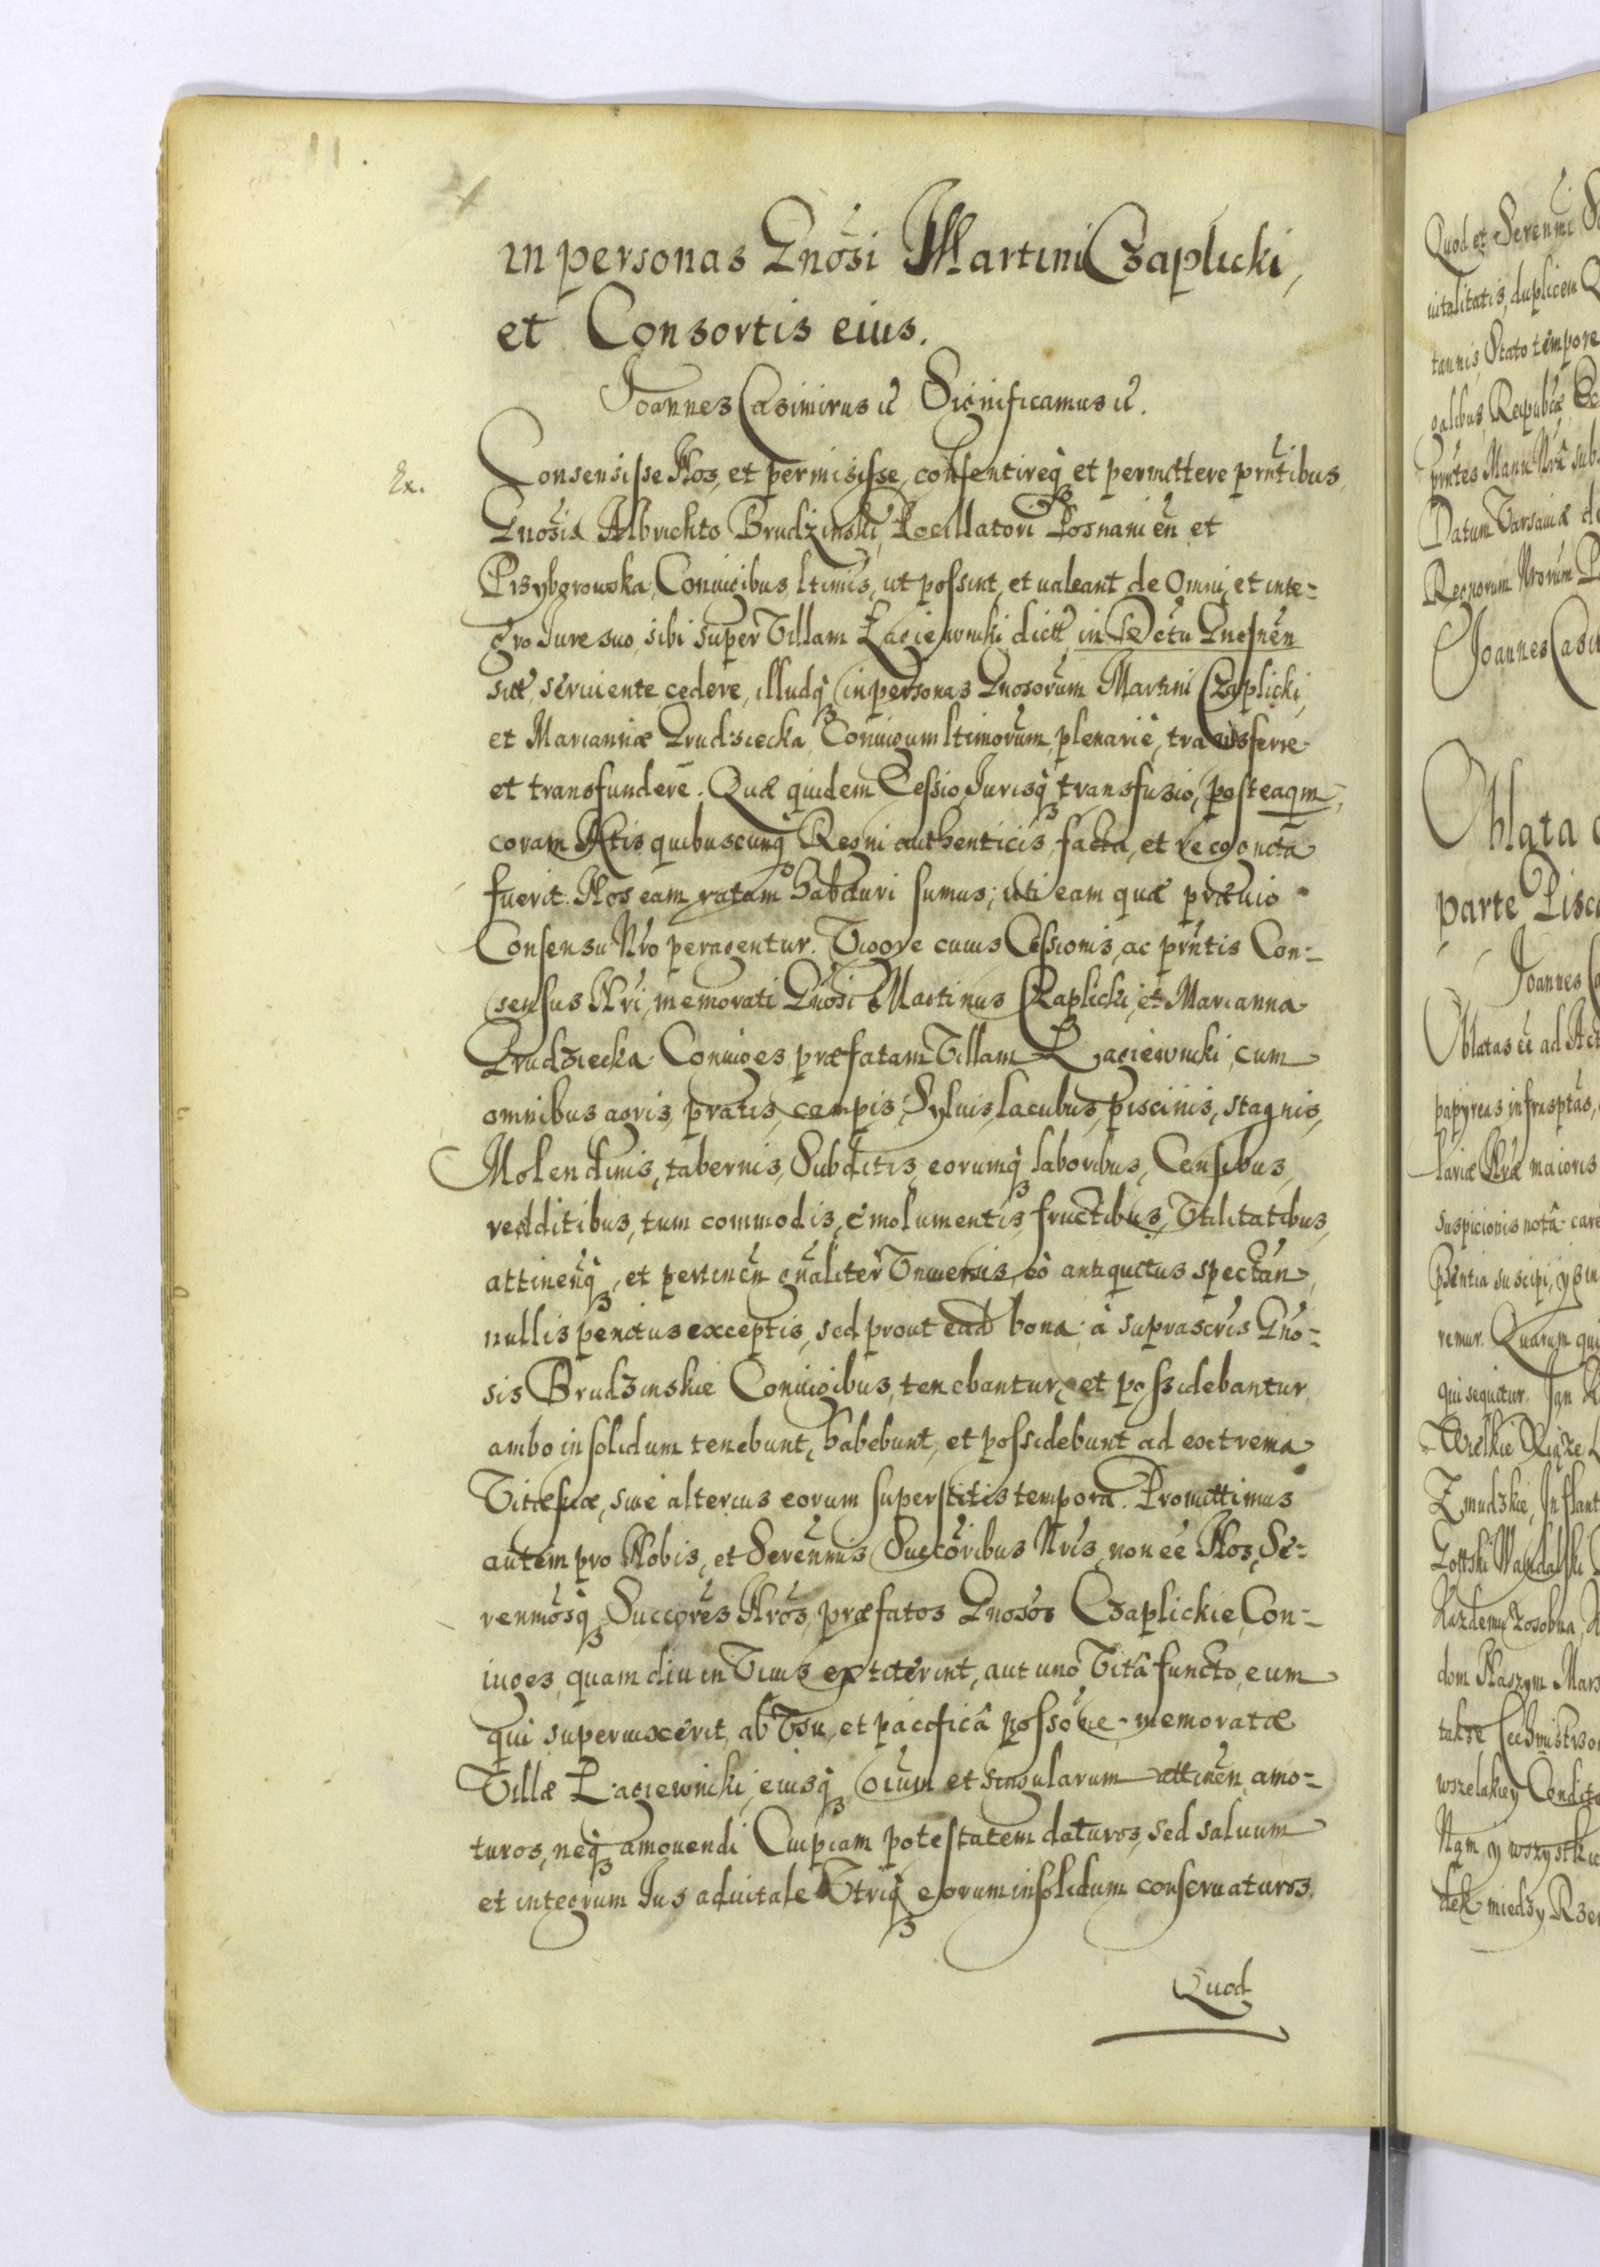 11.
in personas Gnosi Martini Czaplicki,
et Consortis eius.
Joannes Casimirus etc Significamus etc.
Ex.
Consensisse Nos, et permisisse, consentireq et permittere prntibus,
Gnosis Albrichto Brudzinski, Pocillatori Posnanien et
Przyborowska Coniugibus ltimis, ut possint, et ualeant de Omni, et inte-
gro Jure suo, sibi super Villam Łagiewniki dictt, in Dctu Gnesnen
sitt, seruiente, cedere, illudq in personas Gnosorum Martini Czaplicki,
et Mariannæ Grudziecka Coniugum ltimorum plenarie, transferre
et transfundere. Quæ quidem Cessio Jurisq transfusio, posteaqm
coram Actis quibuscunq Regni authenticis facta, et recognita
fuerit. Nos eam ratam habituri sumus, uti eam quæ præuio
Consensu Nro peragentur. Vigore cuius Cessionis, ac prntis Con-
sensus Nri, memorati Gnosi Martinus Czaplicki, et Marianna
Grudziecka Coniuges, præfatam Villam Łagiewniki, cum
omnibus agris, pratis, campis, Syluis, lacubus, piscinis, stagnis,
Molendinis, tabernis, Subditis, eorumq laboribus, Censibus,
redditibus, tum commodis, emolumentis, fructibus, Vtilitatibus,
attinenq, et pertinen gnaliter Vniuersis, eò antiquitus spectan,
nullis penitus exceptis, sed prout ead bona à suprascris Gno-
sis Brudzinskie Coniugibus, tenebantur, et possidebantur,
ambo in solidum tenebunt, habebunt, et possidebunt ad extrema
Vitæ suæ, siue alterius eorum superstitis tempora. Promittimus
autem pro Nobis, et Serenmis Succoribus Nris, non eè Nos, Se-
renmosq Succores Nros, præfatos Gnosos Czaplickie, Con-
iuges, quam diu in Viuis extiterint, aut uno Vitâ functo, eum
qui superuixerit, ab Vsu, et pacificâ possòne memoratæ
Villæ Łagiewniki, eiusq oium et singularum attinen, amo-
turos, neq amouendi Cuipiam potestatem daturos, sed saluum
et integrum Jus aduitale Vtriq eorum insolidum conseruaturos.
Quod
Quod et Serenmi
uitalitatis, duplicem
tannis, Stato tempore
galibus, Reipublcæ
prntes Manu Nra sub
Datum Varsauiæ
Regnorum Nrorum
Joannes
Oblata
parte
Joannes
Oblatas ee ad
papyreas infrasptas,
lariæ Nræ maioris
suspicionis notâ
suscipi,
remur. Quarum
qui sequitur. Jan
Wielkie
Zmudzkie, Inflant
Gottski Wandalski
Każdemu zosobna,
Naszym
także
wszelakiey
Nam y wszystkie
miedzy